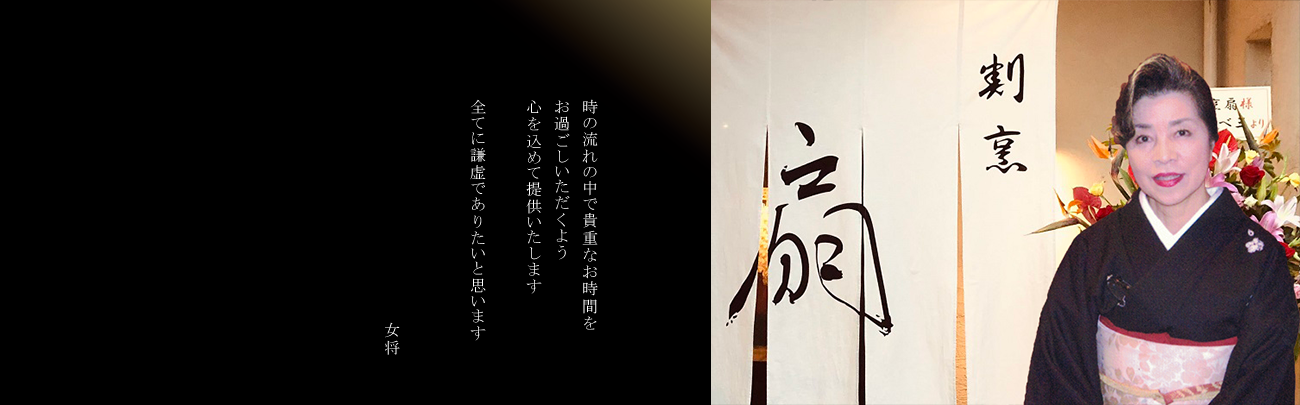 時の流れの中で貴重なお時間を
お過ごしいただくよう
心を込めて提供いたします
全てに謙虚でありたいと思います
女将
割烹
扇
扇様
べ三より